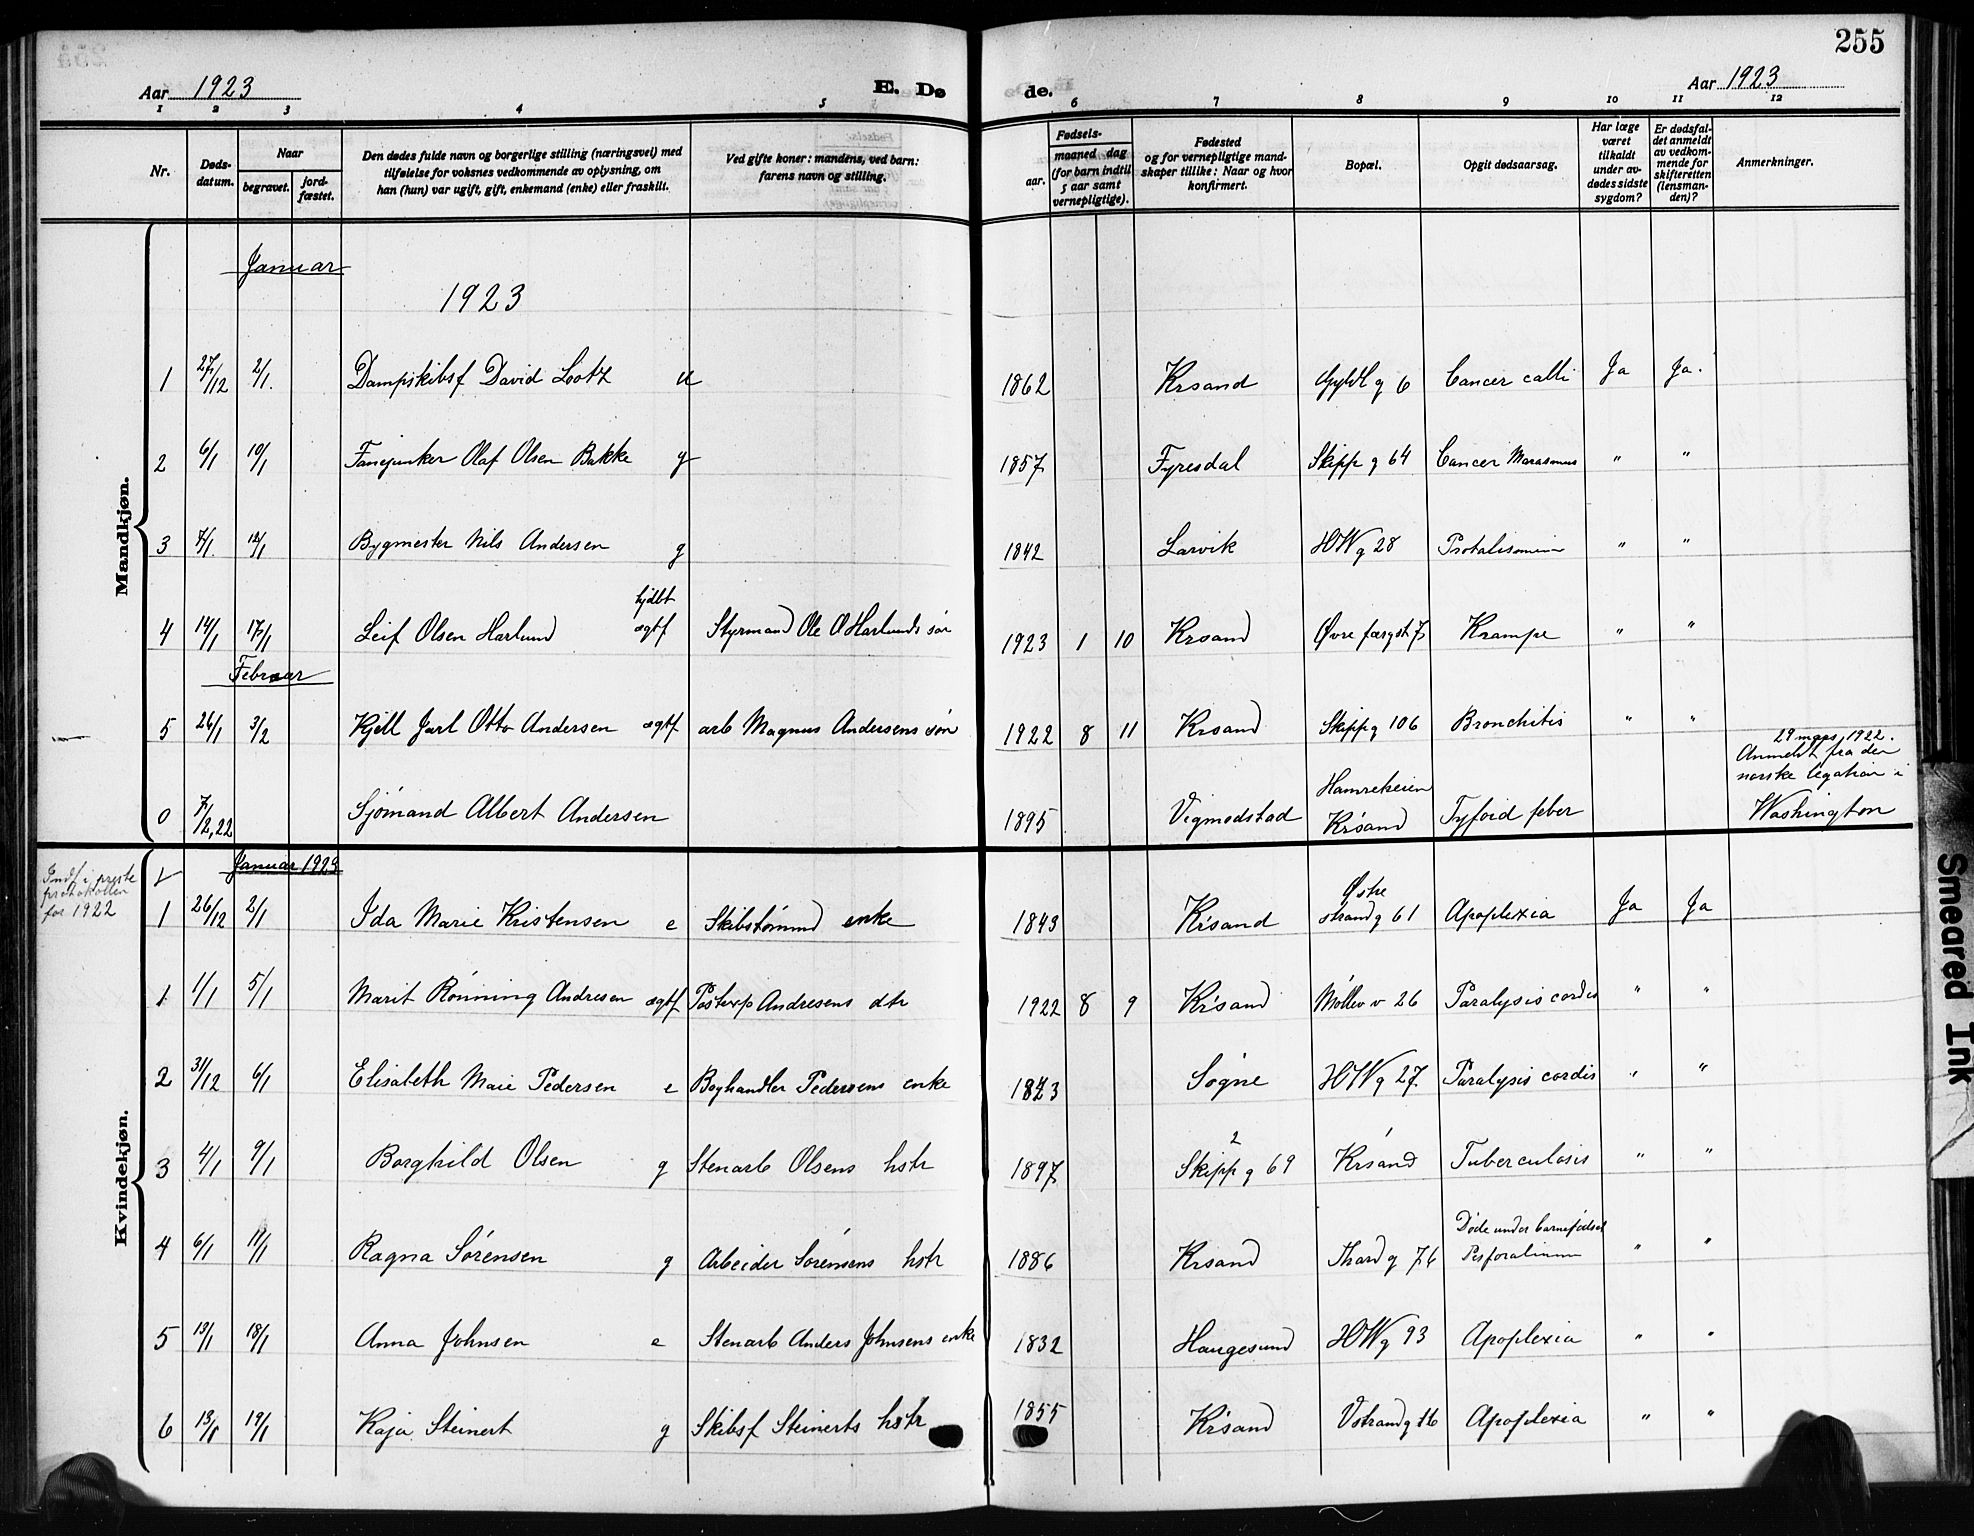 255
Aar 1923 E. Dø de. Aar 1923
1 2 3 4 5 6 7 8 9 10 11 12
Nr.
Døds-
datum.
Naar
begravet.
jord-
fæstet.
Den dødes fulde navn og borgerlige stilling (næringsvei) med
tilføielse for voksnes vedkommende av oplysning, om
han (hun) var ugift, gift, enkemand (enke) eller fraskilt.
Ved gifte koner: mandens, ved barn:
farens navn og stilling.
Fødsels-
aar.
maaned dag
(for barn indtil
5 aar samt
vernepligtige).
Fødested
og for vernepligtige mand-
skaper tillike: Naar og hvor
konfirmert.
Bopæl.
Opgit dødsaarsag.
Har læge
været
tilkaldt
under av-
dødes sidste
sygdom?
Er dødsfal-
det anmeldt
av vedkom-
mende for
skifteretten
(lensman-
den)?
Anmerkninger.
Mandkjøn.
Januar
1923
1 27/12 2/1. Dampskibsf David Lootz u 1862 Krsand Gyldl g 6 Cancer colli Ja Ja.
2 6/1 10/1 Fanejunker Olaf Olsen Bakke g 1857 Fyresdal Skipp g 64 Cancer Marasmus " "
3 7/1. 12/1 Bygmester Nils Andersen g 1842 Larvik HWg 28 " "
hjdbt
4 14/1 17/1 Leif Olsen Harlund ægtf Styrmand Ole O Harlunds søn 1923 1 10 Krsand Øvre færgst 7 Krampe " "
Februar
5 26/1 3/2 Kjell Jarl Otto Andersen ægtf arb Magnus Andersens søn 1922 8 11 Krsand Skippg 106 Bronchitis " "
29 mars 1922.
Anmeldt fra den
norske legation i
Washington
0 7/2, 22 Sjömand Albert Andersen 1895 Vigmodstad Hamreheien
Krsand Tyfoid feber
Kvindekjøn.
Indf i preste
protokollen
for 1922
Januar 1923
1 26/12 2/1 Ida Marie Kristensen e Skibstømmd enke 1843 Krsand Østre
strandg 61 Apoplexia Ja Ja
1 1/1 5/1 Marit Rönning Andresen ægtf Postexp Andresens dtr 1922 8 9 Krsand Möllev v 26 Paralysis cordis " "
2 31/12 6/1 Elisabeth Marie Pedersen e Boghandler Pedersens enke 1843 Søgne HWg 27. Paralysis cordis " "
3 4/1 9/1 Borghild Olsen g Stenarb Olsens hstr 1897 2
Skipp g 69 Krsand Tuberculosis " "
4 6/1 11/1 Ragna Sørensen g Arbeider Sørensens hstr 1886 Krsand Thard g 76 Døde under barnefødsel
" "
5 13/1 18/1 Anna Johnsen e Stenarb Anders Johnsens enke 1832 Haugesund HWg 93 Apoplexia " "
6 13/1 19/1 Kaja Steinert g Skibsf Steinerts hstr 1855 Krsand Vstrandg 16 Apoplexia " "
Smeared Ink